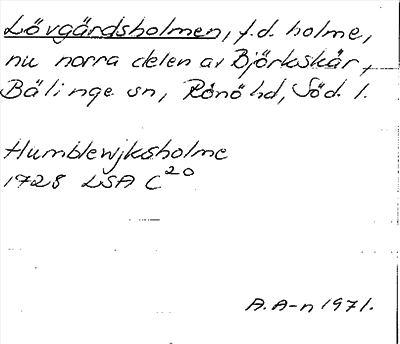 Lövgärdsholmen, f.d. holme,
nu norra delen av Björkskär,
Bälinge sn, Rönö hd, Söd. l.
Humblewjksholme
1728 LSA C20
A. A-n 1971.